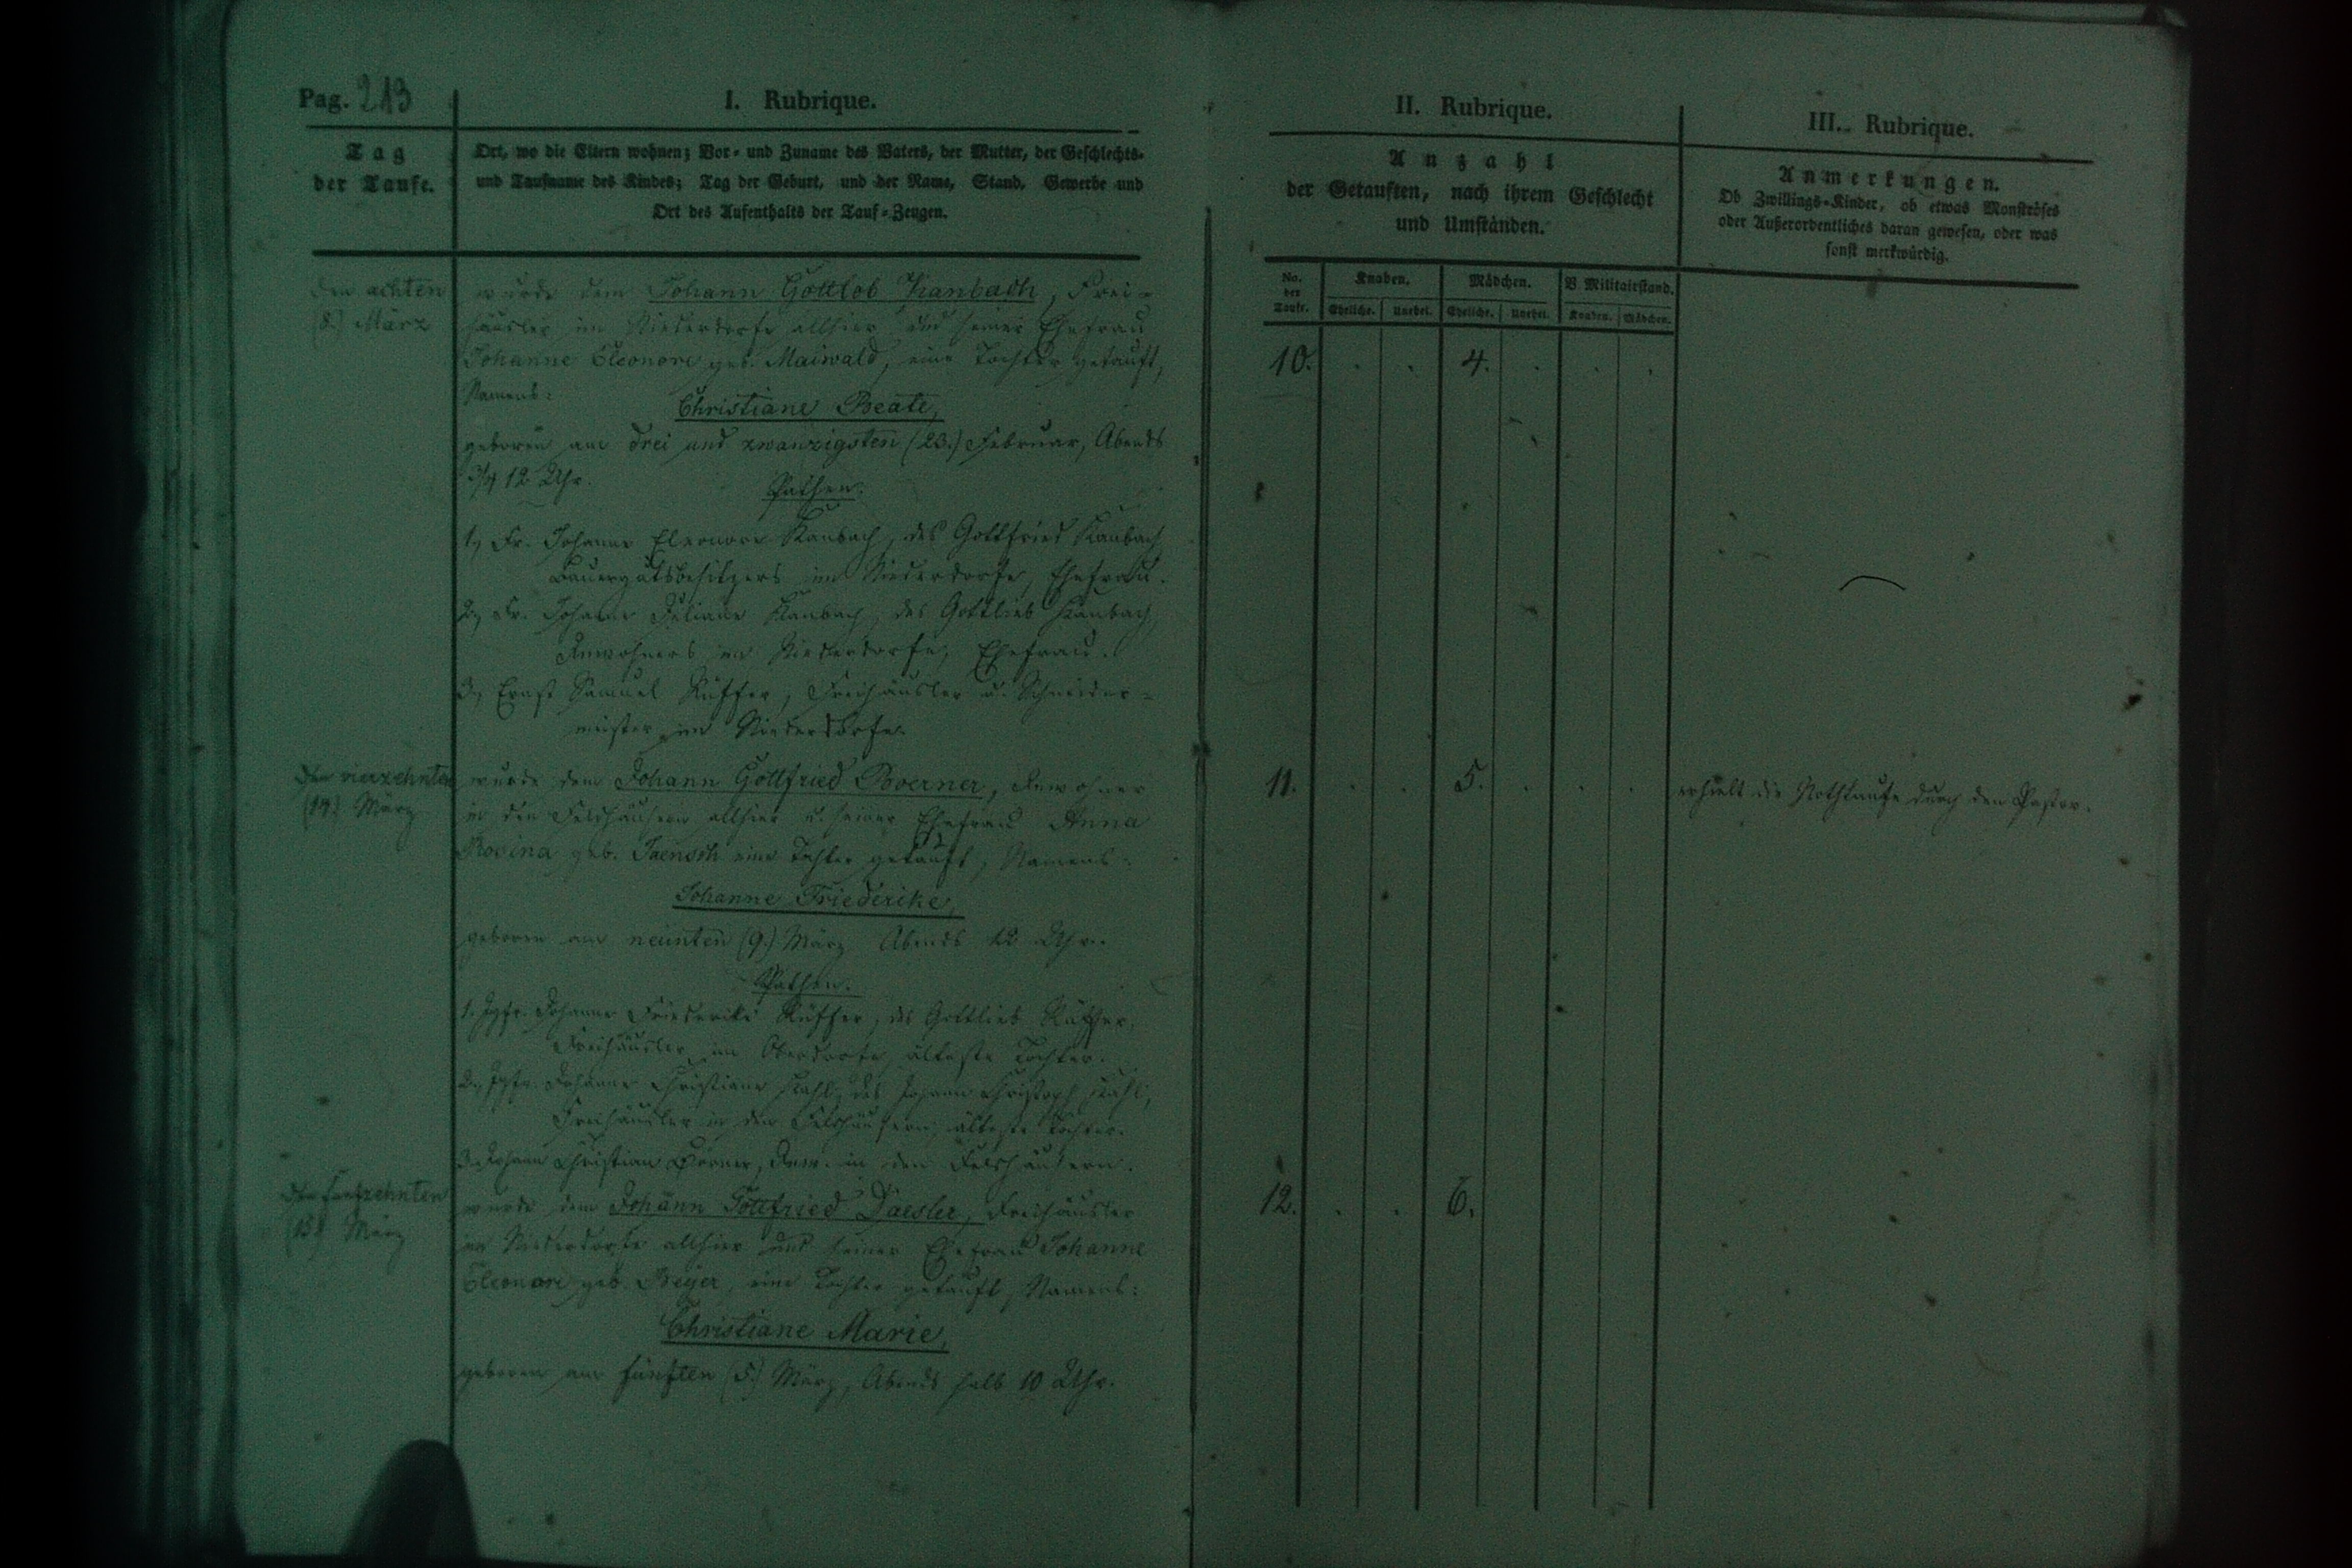 Pag. 213
I. Rubrique.
Tag
der Taufe.
Ort, wo die Eltern wohnen; Vor- und Zuname des Vaters, der Mutter, der Geschlechts-
und Taufname des Kindes; Tag der Geburt, und der Name, Stand, Gewerbe und
Ort des Aufenthalts der Tauf-Zeugen.
Den achten
(8.) März
wurde dem Johann Gottlob Kanbach, Frei-
häusler im Niederdorfe allhier und seiner Ehefrau
Johanne Eleonore geb. Maiwald, eine Tochter getauft,
Namens:
Christiane Beate,
geboren am drei und zwanzigsten (23.) Februar, Abends
3/4 12 Uhr.
Pathen.
1, Fr. Johanne Eleonore Kanbach, des Gottfried Kanbach
Bauergutsbesitzers im Niederdorfe, Ehefrau.
2, Fr. Johanne Juliane Kanbach, des Gottlieb Kanbach,
Inwohners im Niederdorfe, Ehefrau.
3, Ernst Samuel Rüffer, Freihäusler u. Schneider-
meister im Niederdorfe.
Den vierzehnten
(14.) März
wurde dem Johann Gottfried Boerner, Inwohner
in den Feldhäusern allhier u. seiner Ehefrau Anna
Rosina geb. Jaensch eine Tochter getauft, Namens:
Johanne Friederike,
geboren am neunten (9.) März Abends 12 Uhr.
Pathen.
1. Jgfr. Johanne Friederike Rüffer, des Gottlieb Rüffer,
Freihäusler im Oberdorfe, älteste Tochter.
2., Jgfr. Johanne Christiane Kahl, des Johann Christoph Kahl,
Freihäusler in den Feldhäusern, älteste Tochter.
3. Johann Christian Börner, Inw. in den Feldhäusern.
Den funfzehnten
(15.) März
wurde dem Johann Gottfried Daesler, Freihäusler
im Niederdorfe allhier und seiner Ehefrau Johanne
Eleonore geb. Beyer, eine Tochter getauft, Namens:
Christiane Marie,
geboren am fünften (5.) März, Abends halb 10 Uhr.
II. Rubrique.
Anzahl
der Getauften, nach ihrem Geschlecht
und Umständen.
No. der Taufe.
Knaben. Mädchen. V. Militairstand.
Eheliche. Unehel. Eheliche. Unehel. Knaben. Mädchen.
10. . . 4. . . .
11. . . 5. . . .
12. . . 6.
III. Rubrique.
Anmerkungen.
Ob Zwillings-Kinder, ob etwas Monströses
oder Außerordentliches daran gewesen, oder was
sonst merkwürdig.
erhielt die Nothtaufe durch den Pastor.